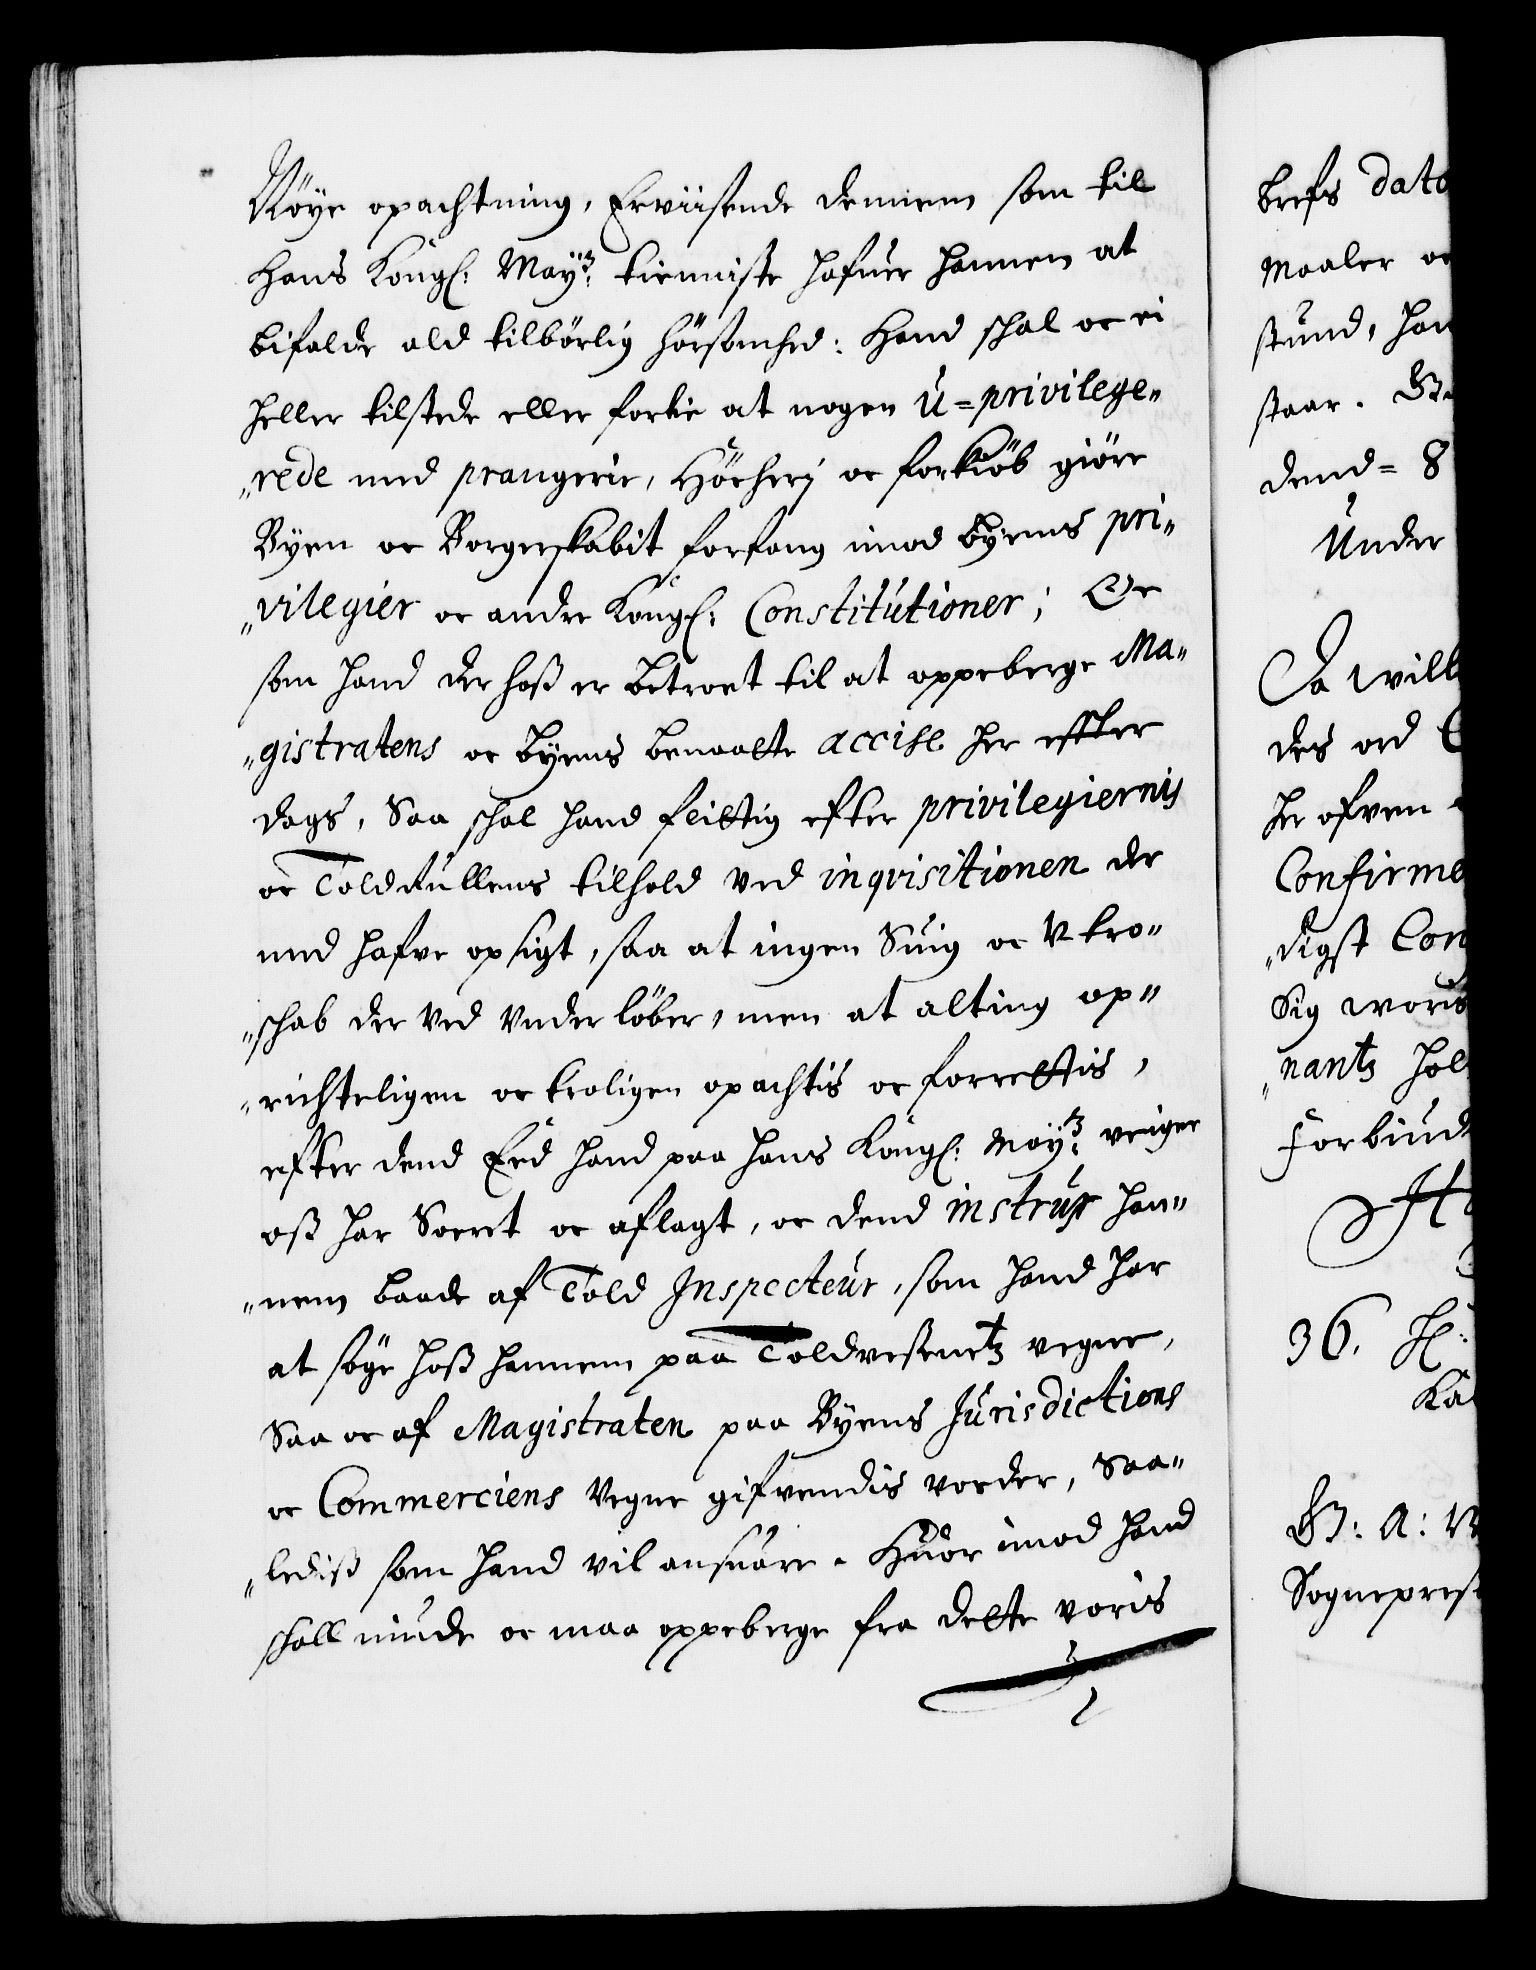 Nöye opachtning, Erviisende dennem som til
Hans Kongl: May:tz tienniste hafuer hannem at
bifalde ald tilbörlig hörsomhed: Hand schal oc ei
heller tilstede eller fortie at nogen U=privilege„
„rede med prangerie, Höcherj oc forkiöb giöre
Byen oc Borgerskabit forfang imod byens pri„
„vilegier oc andre Kongl: Constitutioner; Oc
som hand der hoß er betroet til at oppeberge Ma„
„gistratens oc byens benaatte accise her effter
dags, Saa schal hand flittig efter privilegiernis
oc Toldrullens tilhold ved inqvisitionen der
med hafve opsigt, saa at ingen Suig oc Vtro„
„schab der ved under löber, men at alting op„
„richteligen oc troligen opachtis oc forrettis,
efter dend Eed hand paa hans Kongl: May:tz veigne
oß har Soeret oc aflagt, oc dend instrux han„
„nem baade af Told Inspecteur, som hand har
at söge hoß hannem paa Toldvesenetz vegne,
Saa oc af Magistraten paa Byens Jurisdictions
oc Commerciens Vegne gifvendis vorder, Saa„
„lediß som hand vil ansuare. Huor imod hand
schall niude oc maa oppeberge fra dette voris
brefs dato
Maaler oc
stund, han
staar.
dend= 8
Under
Da will
des ord
her ofven
Confirme
„digst Con
Sig voris
„nantz hol
Forbiud
36.
G: A: V
Sogneprest